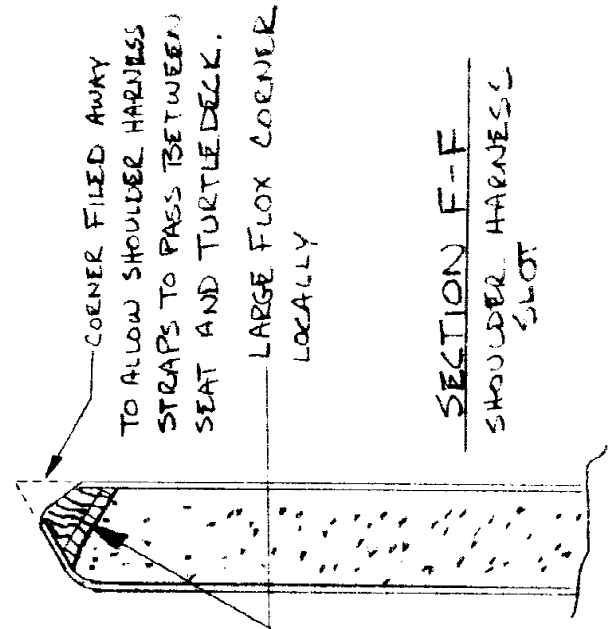 CORNER FILED AWAY
TO ALLOW SHOULDER HARNESS
STRAPS TO PASS BETWEEN
SEAT AND TURTLEDECK.
LARGE FLOX CORNER
LOCALLY
SECTION F-F
SHOULDER HARNESS
SLOT